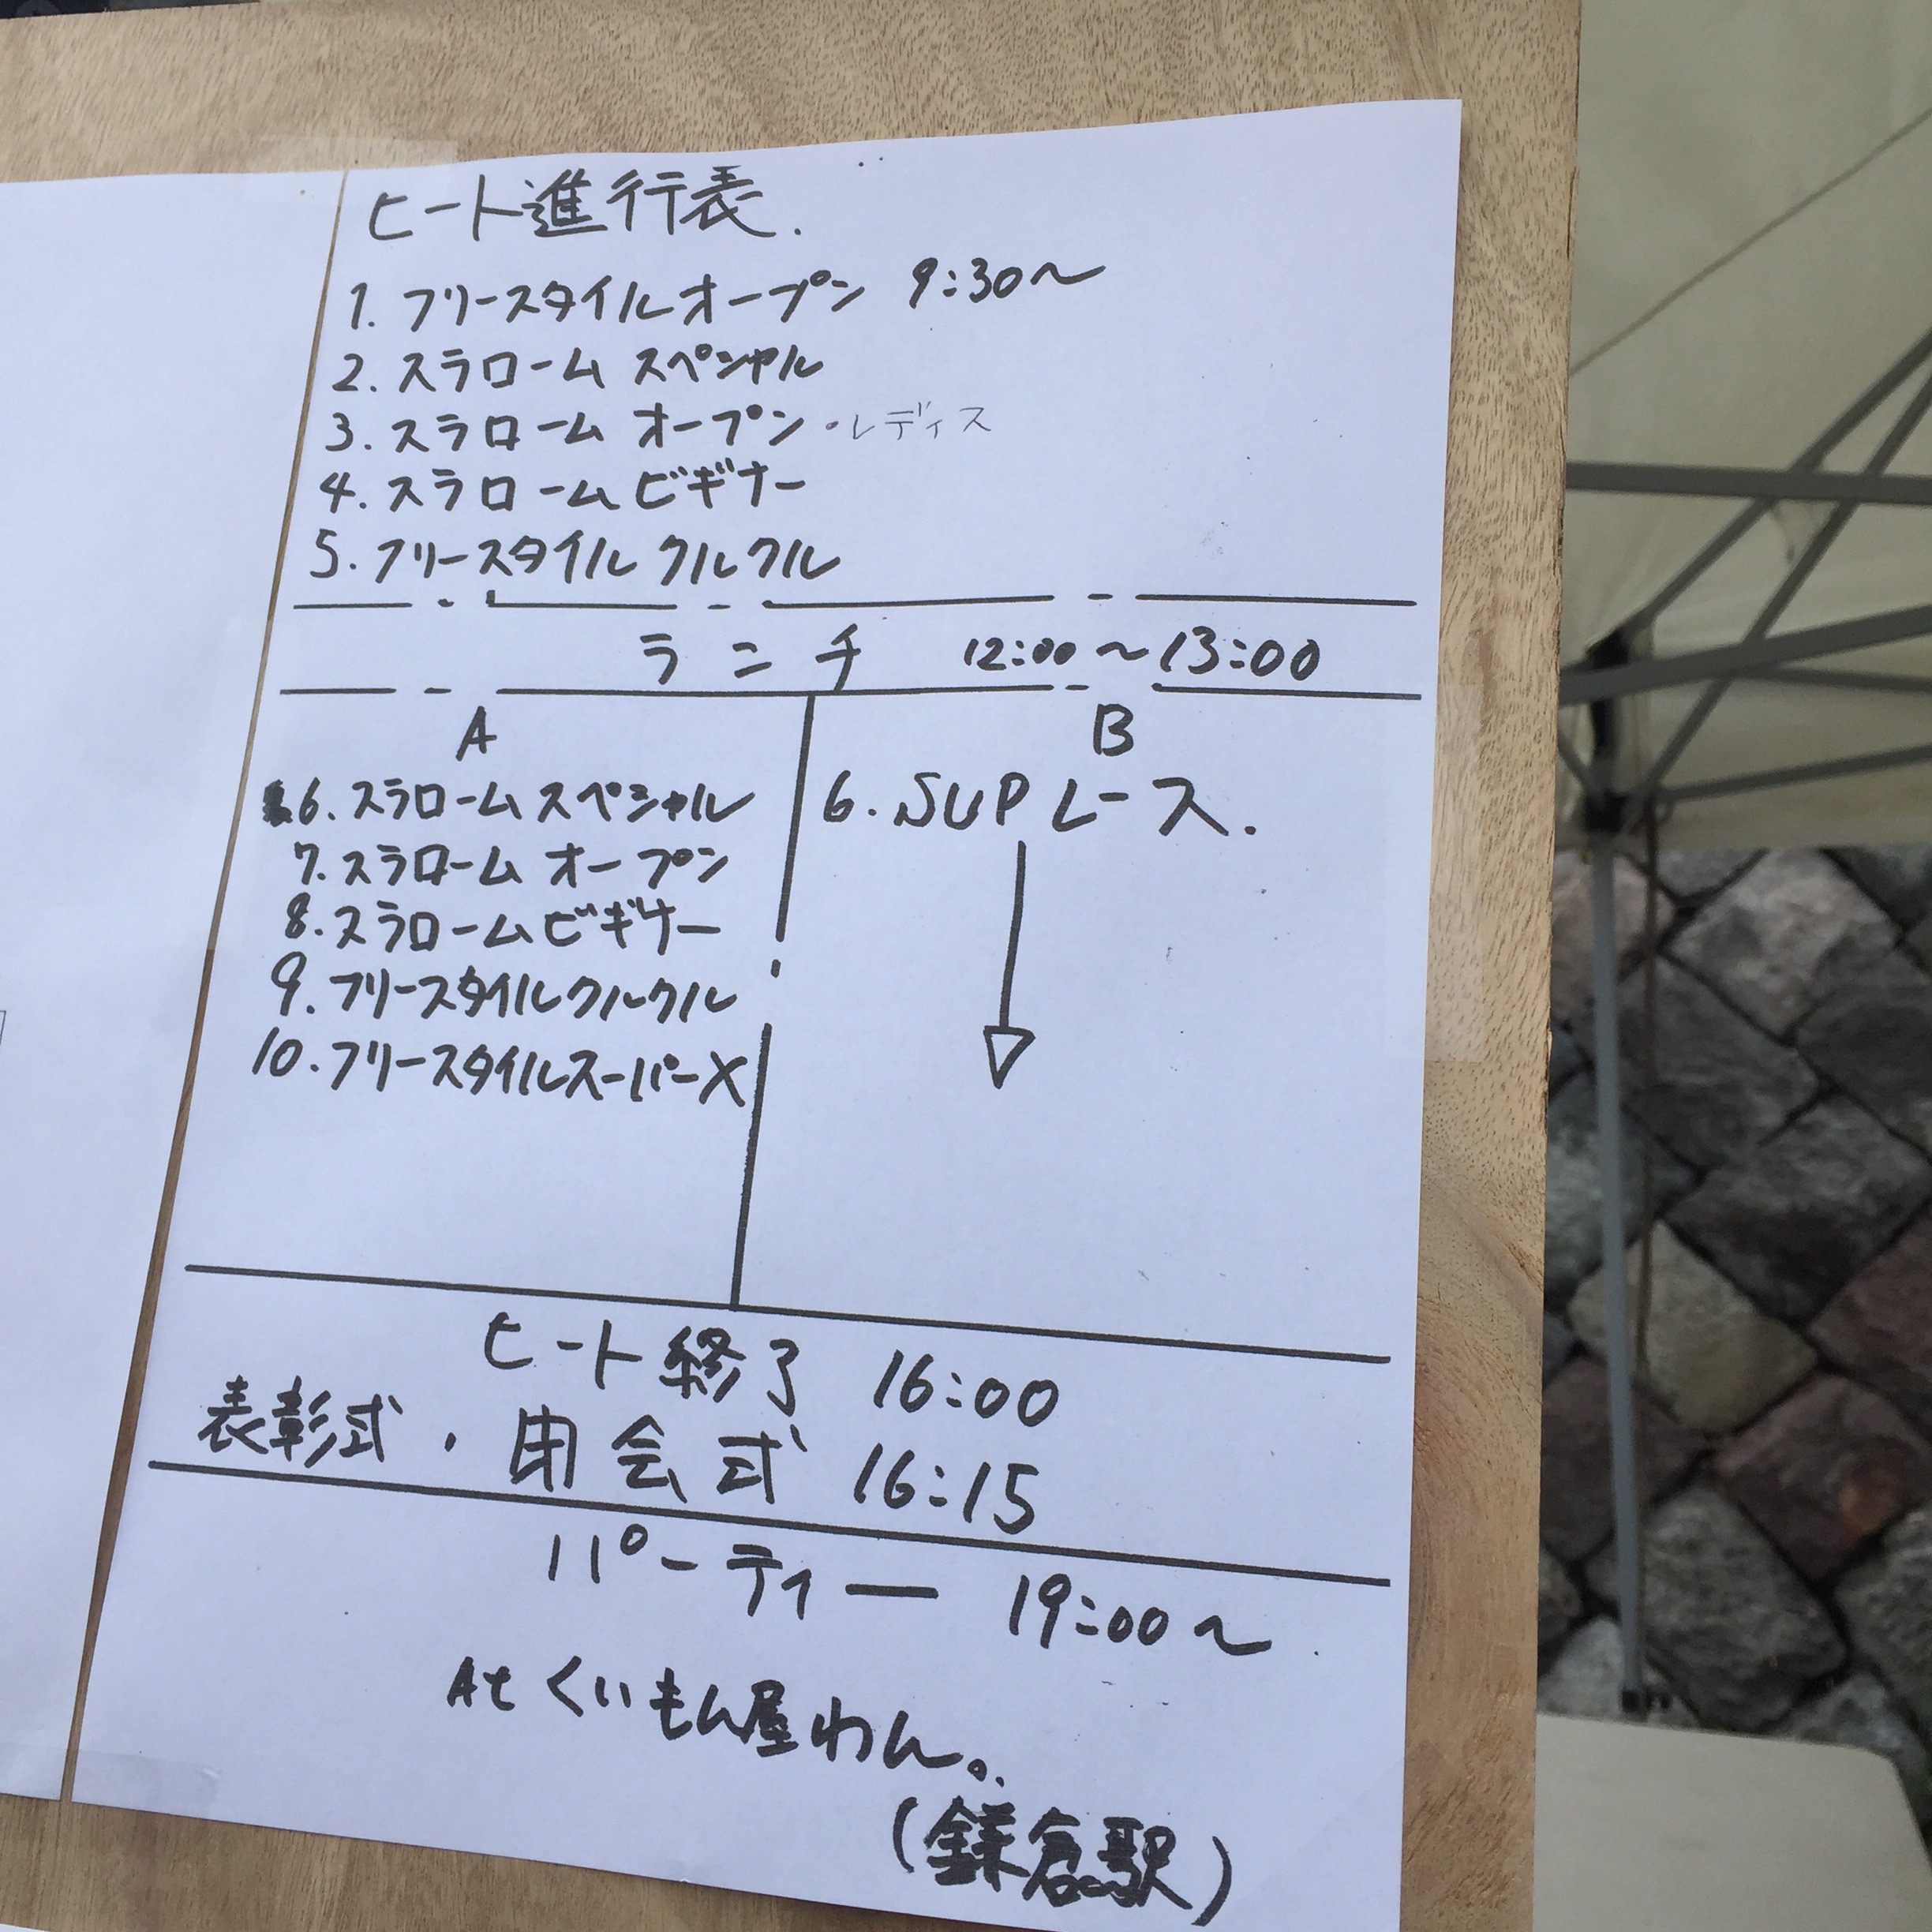 ヒート進行表.
1. フリースタイルオープン 9:30〜
2. スラローム スペシャル
3. スラローム オープン・レディス
4. スラローム ビギナー
5. フリースタイル クルクル
ランチ 12:00〜13:00
A
6. スラローム スペシャル
7. スラローム オープン
8. スラローム ビギナー
9. フリースタイルクルクル
10. フリースタイルスーパーX
B
6. SUP レース.
ヒート終了 16:00
表彰式・閉会式 16:15
パーティー 19:00〜
At くいもん屋わん。
(鎌倉駅)